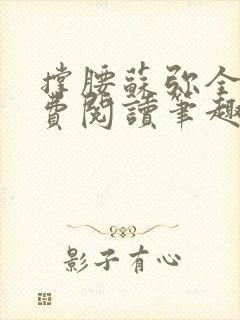 撐腰蘇弥全
費閱讀筆趣
影子有心